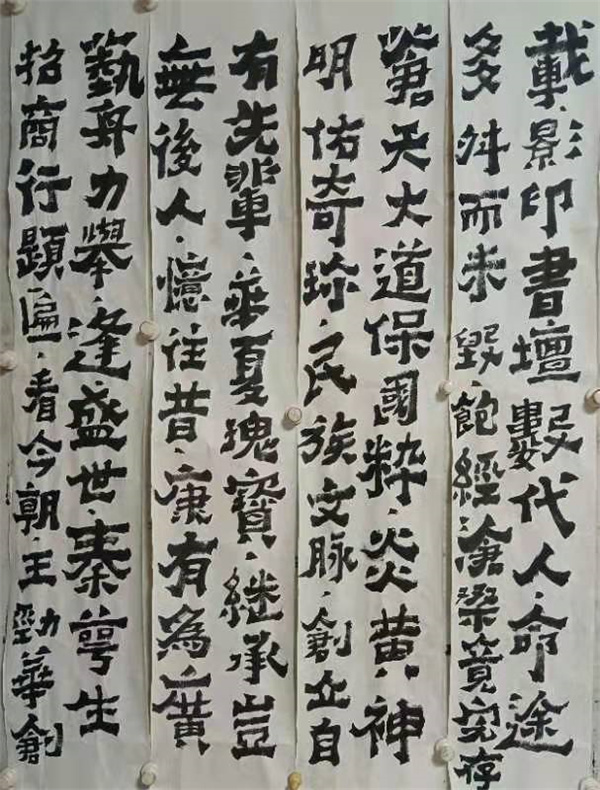 載、影印書壇數代人、命途
多舛而未毀、飽經滄桑竟完存
蒼天大道保國粹、炎黄神
明佑奇珍、民族文脈、創立自
有先輩、華夏瑰寶、繼承豈
無後人、憶往昔、康有為、廣
藝舟力舉、逢盛世、秦咢生
招商行題匾、看今朝、王勁華創